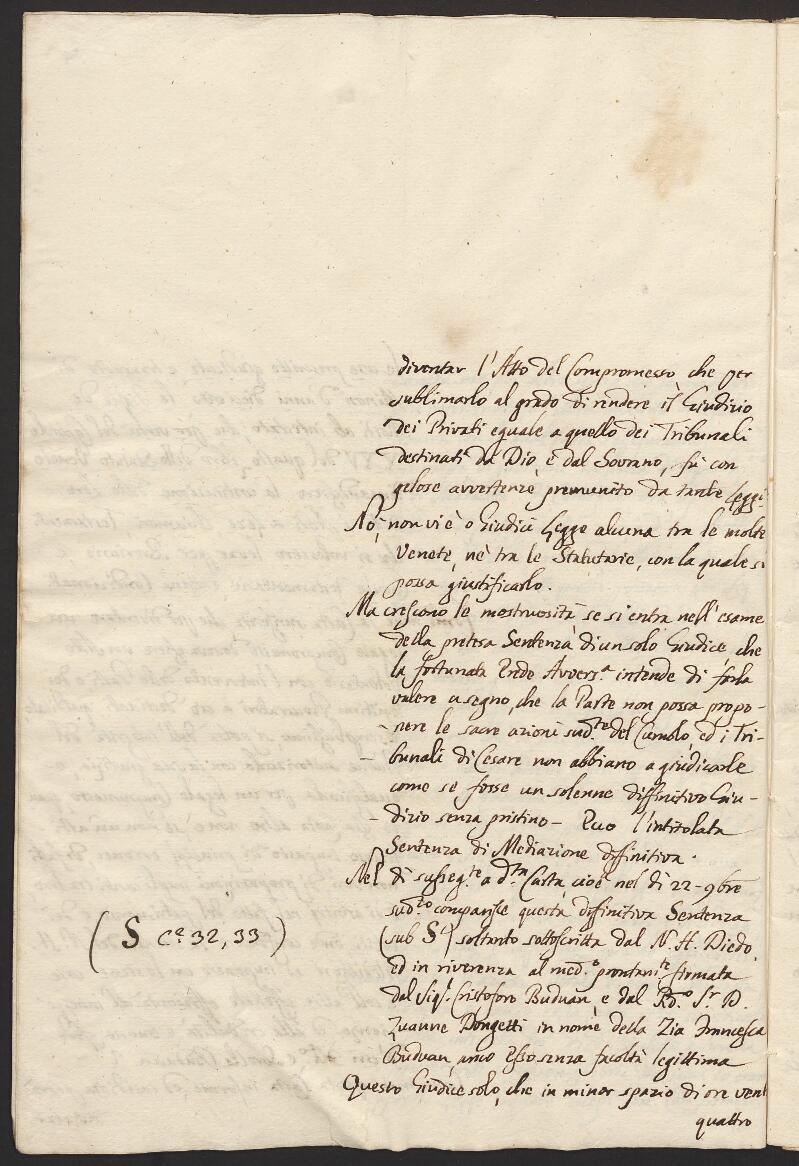 diventar l'Atto del Compromesso che per
sublimarlo al grado di rendere il Giudizio
dei Privati eguale a quello dei Tribunali
destinati da Dio, e dal Sovrano, fù con
gelose avvertenze premunito da tante Leggi.
Nò, non vi è o Giudici Legge alcuna tra le molte
Venete, nè tra le Statutarie, con la quale si
possa giustificarlo.
Ma crescono le mostruosità se si entra nell'esame
della pretesa Sentenza di un solo Giudice, che
la fortunata Erede Avvers.a intende di farla
valere a segno, che la Parte non possa propo-
nere le sacre azioni sud.te del Cumolo, ed i Tri-
- bunali di Cesare non abbiano a giudicarle
come se fosse un solenne diffinitivo Giu-
- dizio senza pristino - Ecco l'intitolata
Sentenza di Mediazione diffinitiva.
Nel dì susseg.te a d.ta Carta, cioè nel dì 22 - 9bre
sud.to comparisce questa diffinitiva Sentenza
(sub S) soltanto sottoscritta dal N. H. Diedo,
(S C.e 32, 33)
ed in riverenza al med.o prontam.te firmata
dal Sig.r Cristoforo Buduan, e dal R.do S.r D.
Zuanne Dongetti in nome della Zia Francesca
Buduan, anco Esso senza facoltà legittima
Questo Giudice solo, che in minor spazio di ore vent
quattro